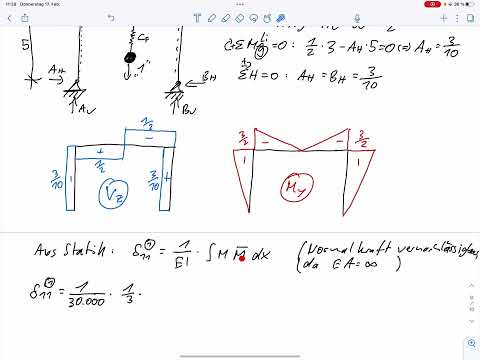 11:59 Donnerstag 17. Feb.
36 %
5
CF
"1"
AH
BH
AV
BV
ΣM g li = 0 : 1/2 · 3 - AH · 5 = 0 (=) AH = 3/10
ΣH = 0 : AH = BH = 3/10
1/2
+
1/2
3/10
3/10
+
Vz
3/2
-
-
3/2
My
Aus Statik : δ11 = 1/EI · ∫ M M̄ dx (Normalkraft vernachlässigbar
da EA = ∞ )
δ11 = 1/30.000 · 1/3 ·